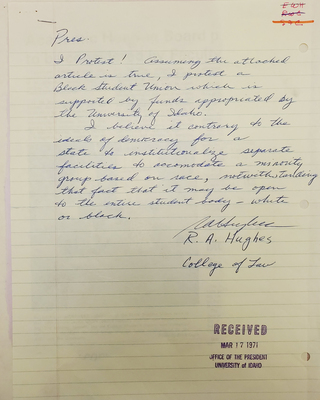 Pres.
I Protest! Assuming the attached
article is true, I protest a
Black Student Union which is
supported by funds appropriated by
the University of Idaho.
I believe it contrary to the
ideals of democracy for a
state to institutionalize separate
facilities to accomodate a minority
group based on race, notwithstanding
that fact that it may be open
to the entire student body – white
or black.
RAHughes
R. A. Hughes
College of Law
RECEIVED
MAR 17 1971
OFFICE OF THE PRESIDENT
UNIVERSITY of IDAHO